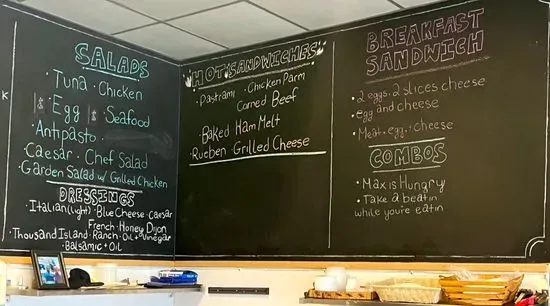 SALADS
Tuna · Chicken
$ Egg $ · Seafood
· Antipasto ·
· Caesar · Chef Salad
· Garden Salad w/ Grilled Chicken
DRESSINGS
· Italian (light) · Blue Cheese · Caesar
French · Honey Dijon
· Thousand Island · Ranch · Oil + Vinegar
· Balsamic + Oil
HOT SANDWICHES
· Pastrami · Chicken Parm
Corned Beef
· Baked Ham Melt
· Rueben · Grilled Cheese
BREAKFAST
SANDWICH
· 2 eggs · 2 slices cheese
· egg and cheese
· Meat · egg · cheese
COMBOS
· Max is Hungry
· Take a beatin
while you're eatin